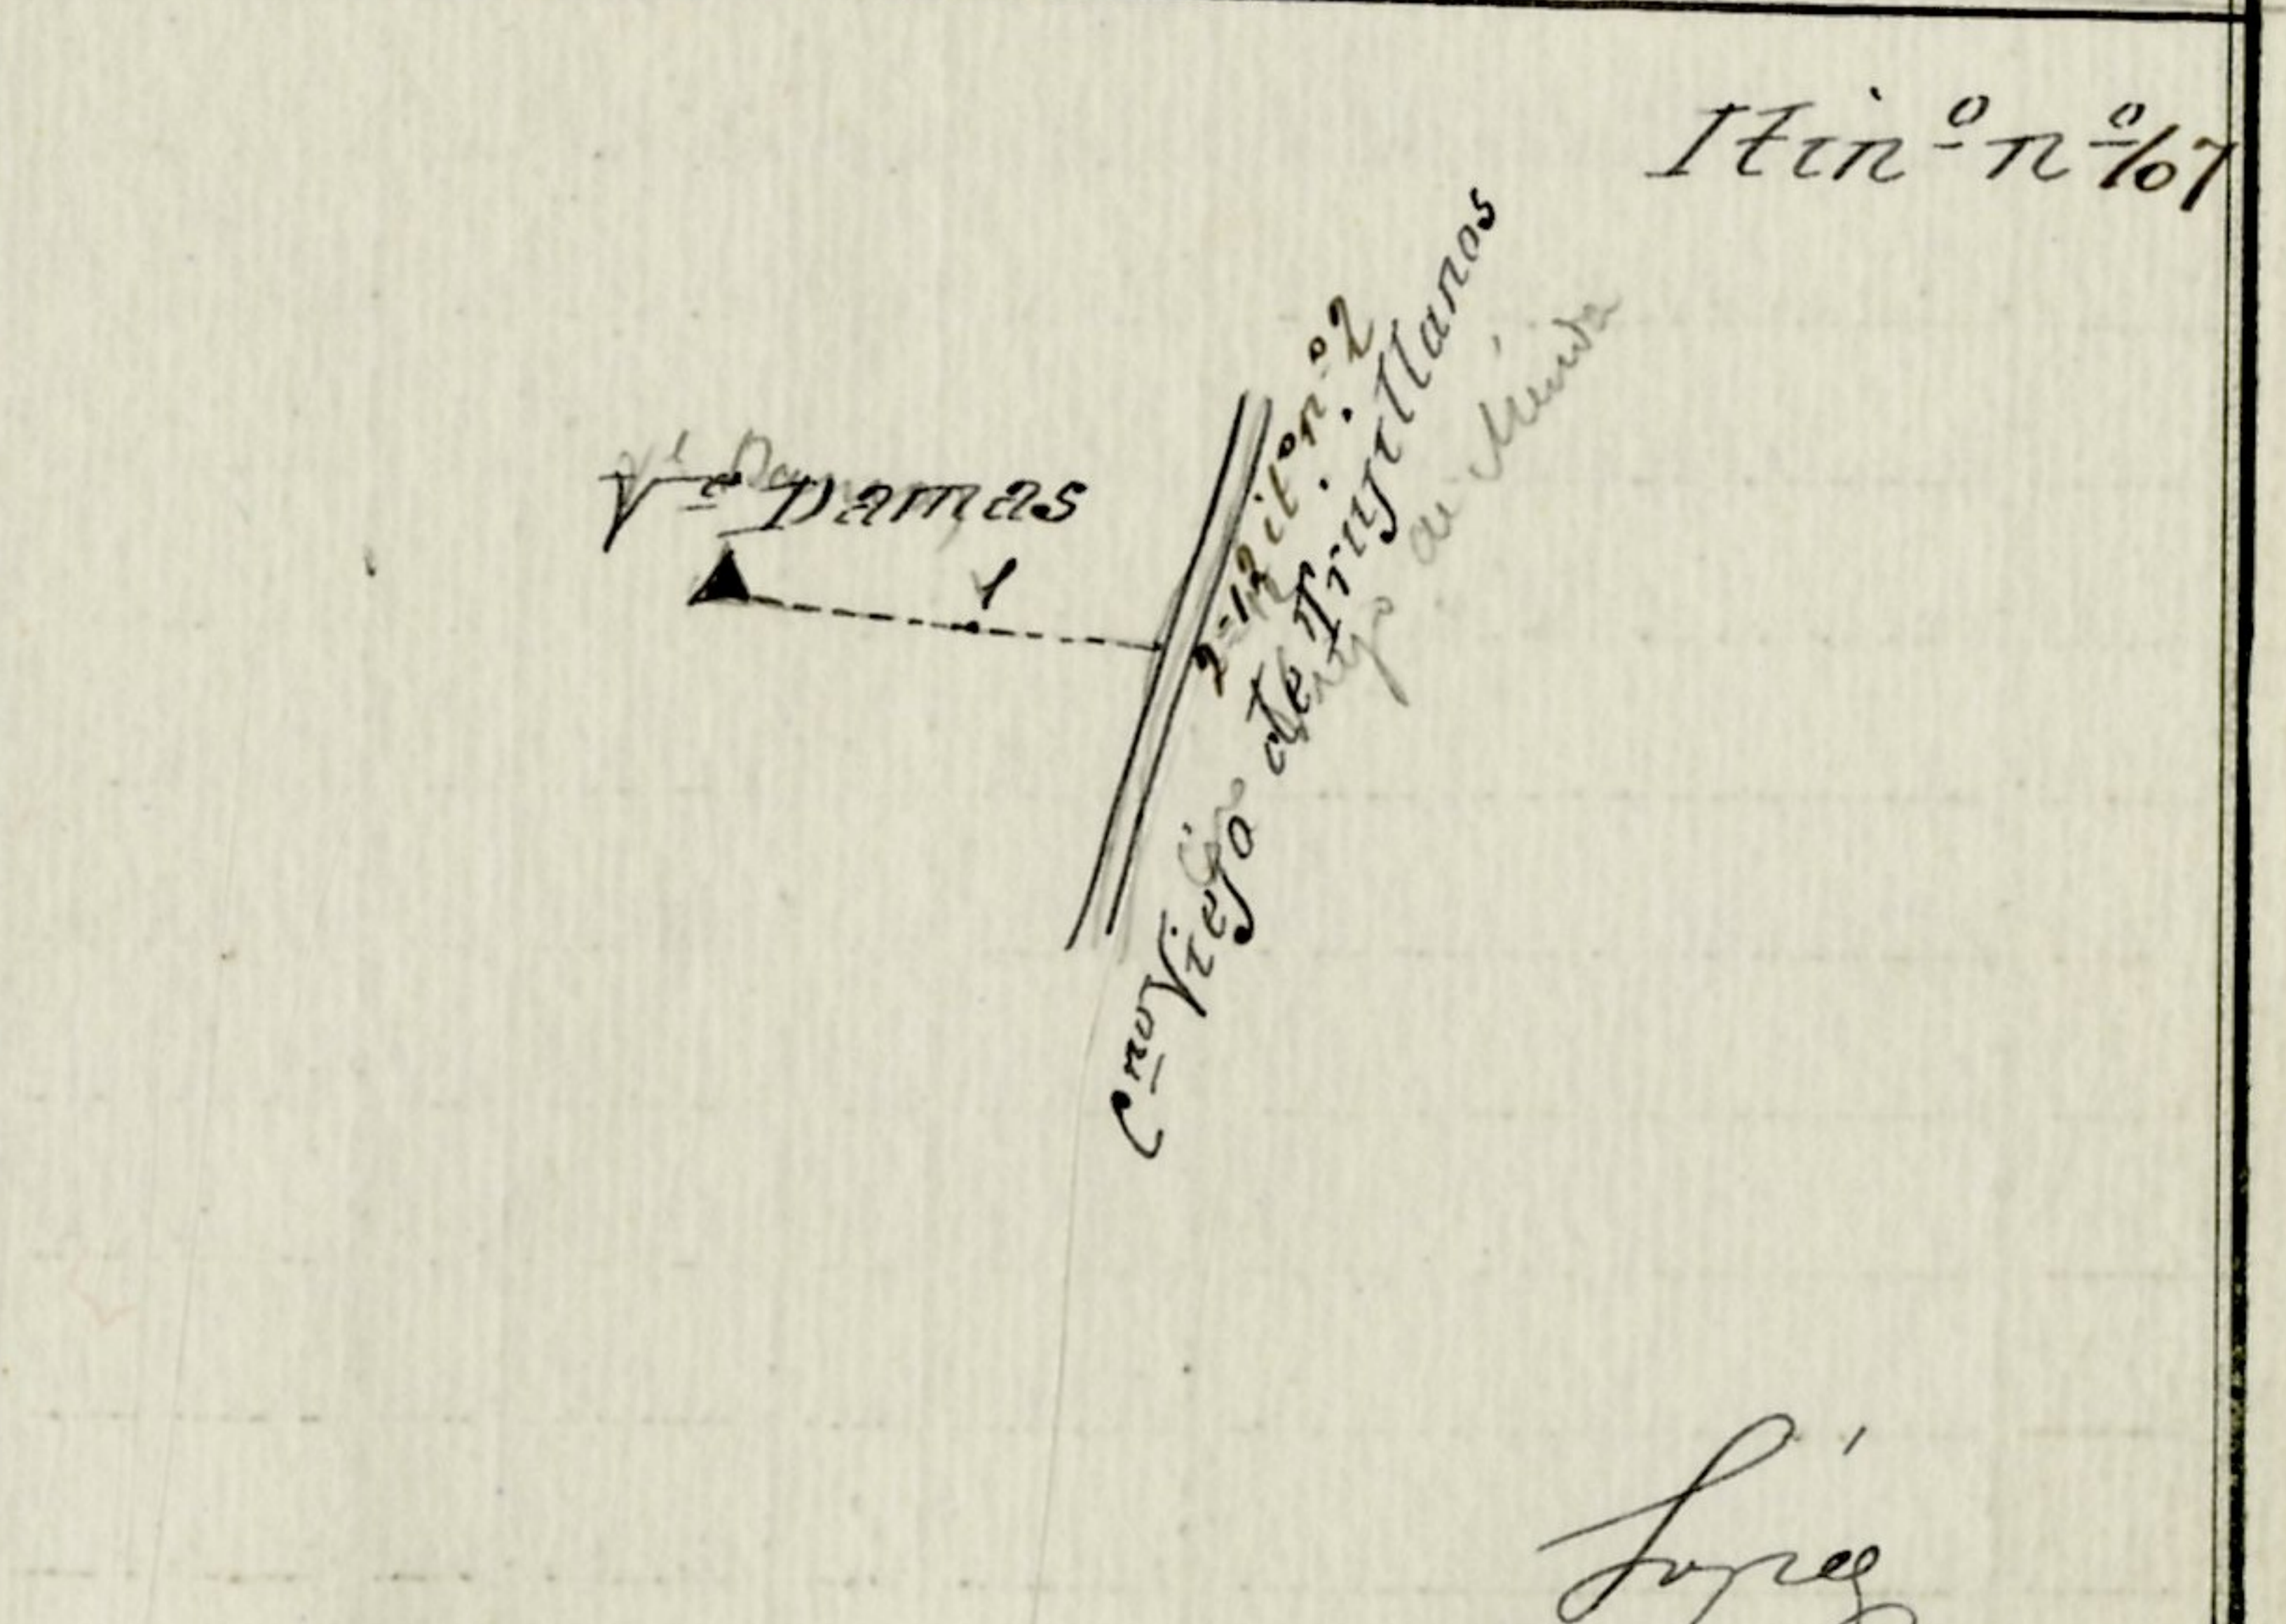 Itinº nº 107
Vᵉ Damas
1
2=12 itº nº 2
Cⁿᵒ Viejo de Trujillanos
de Mérida
López